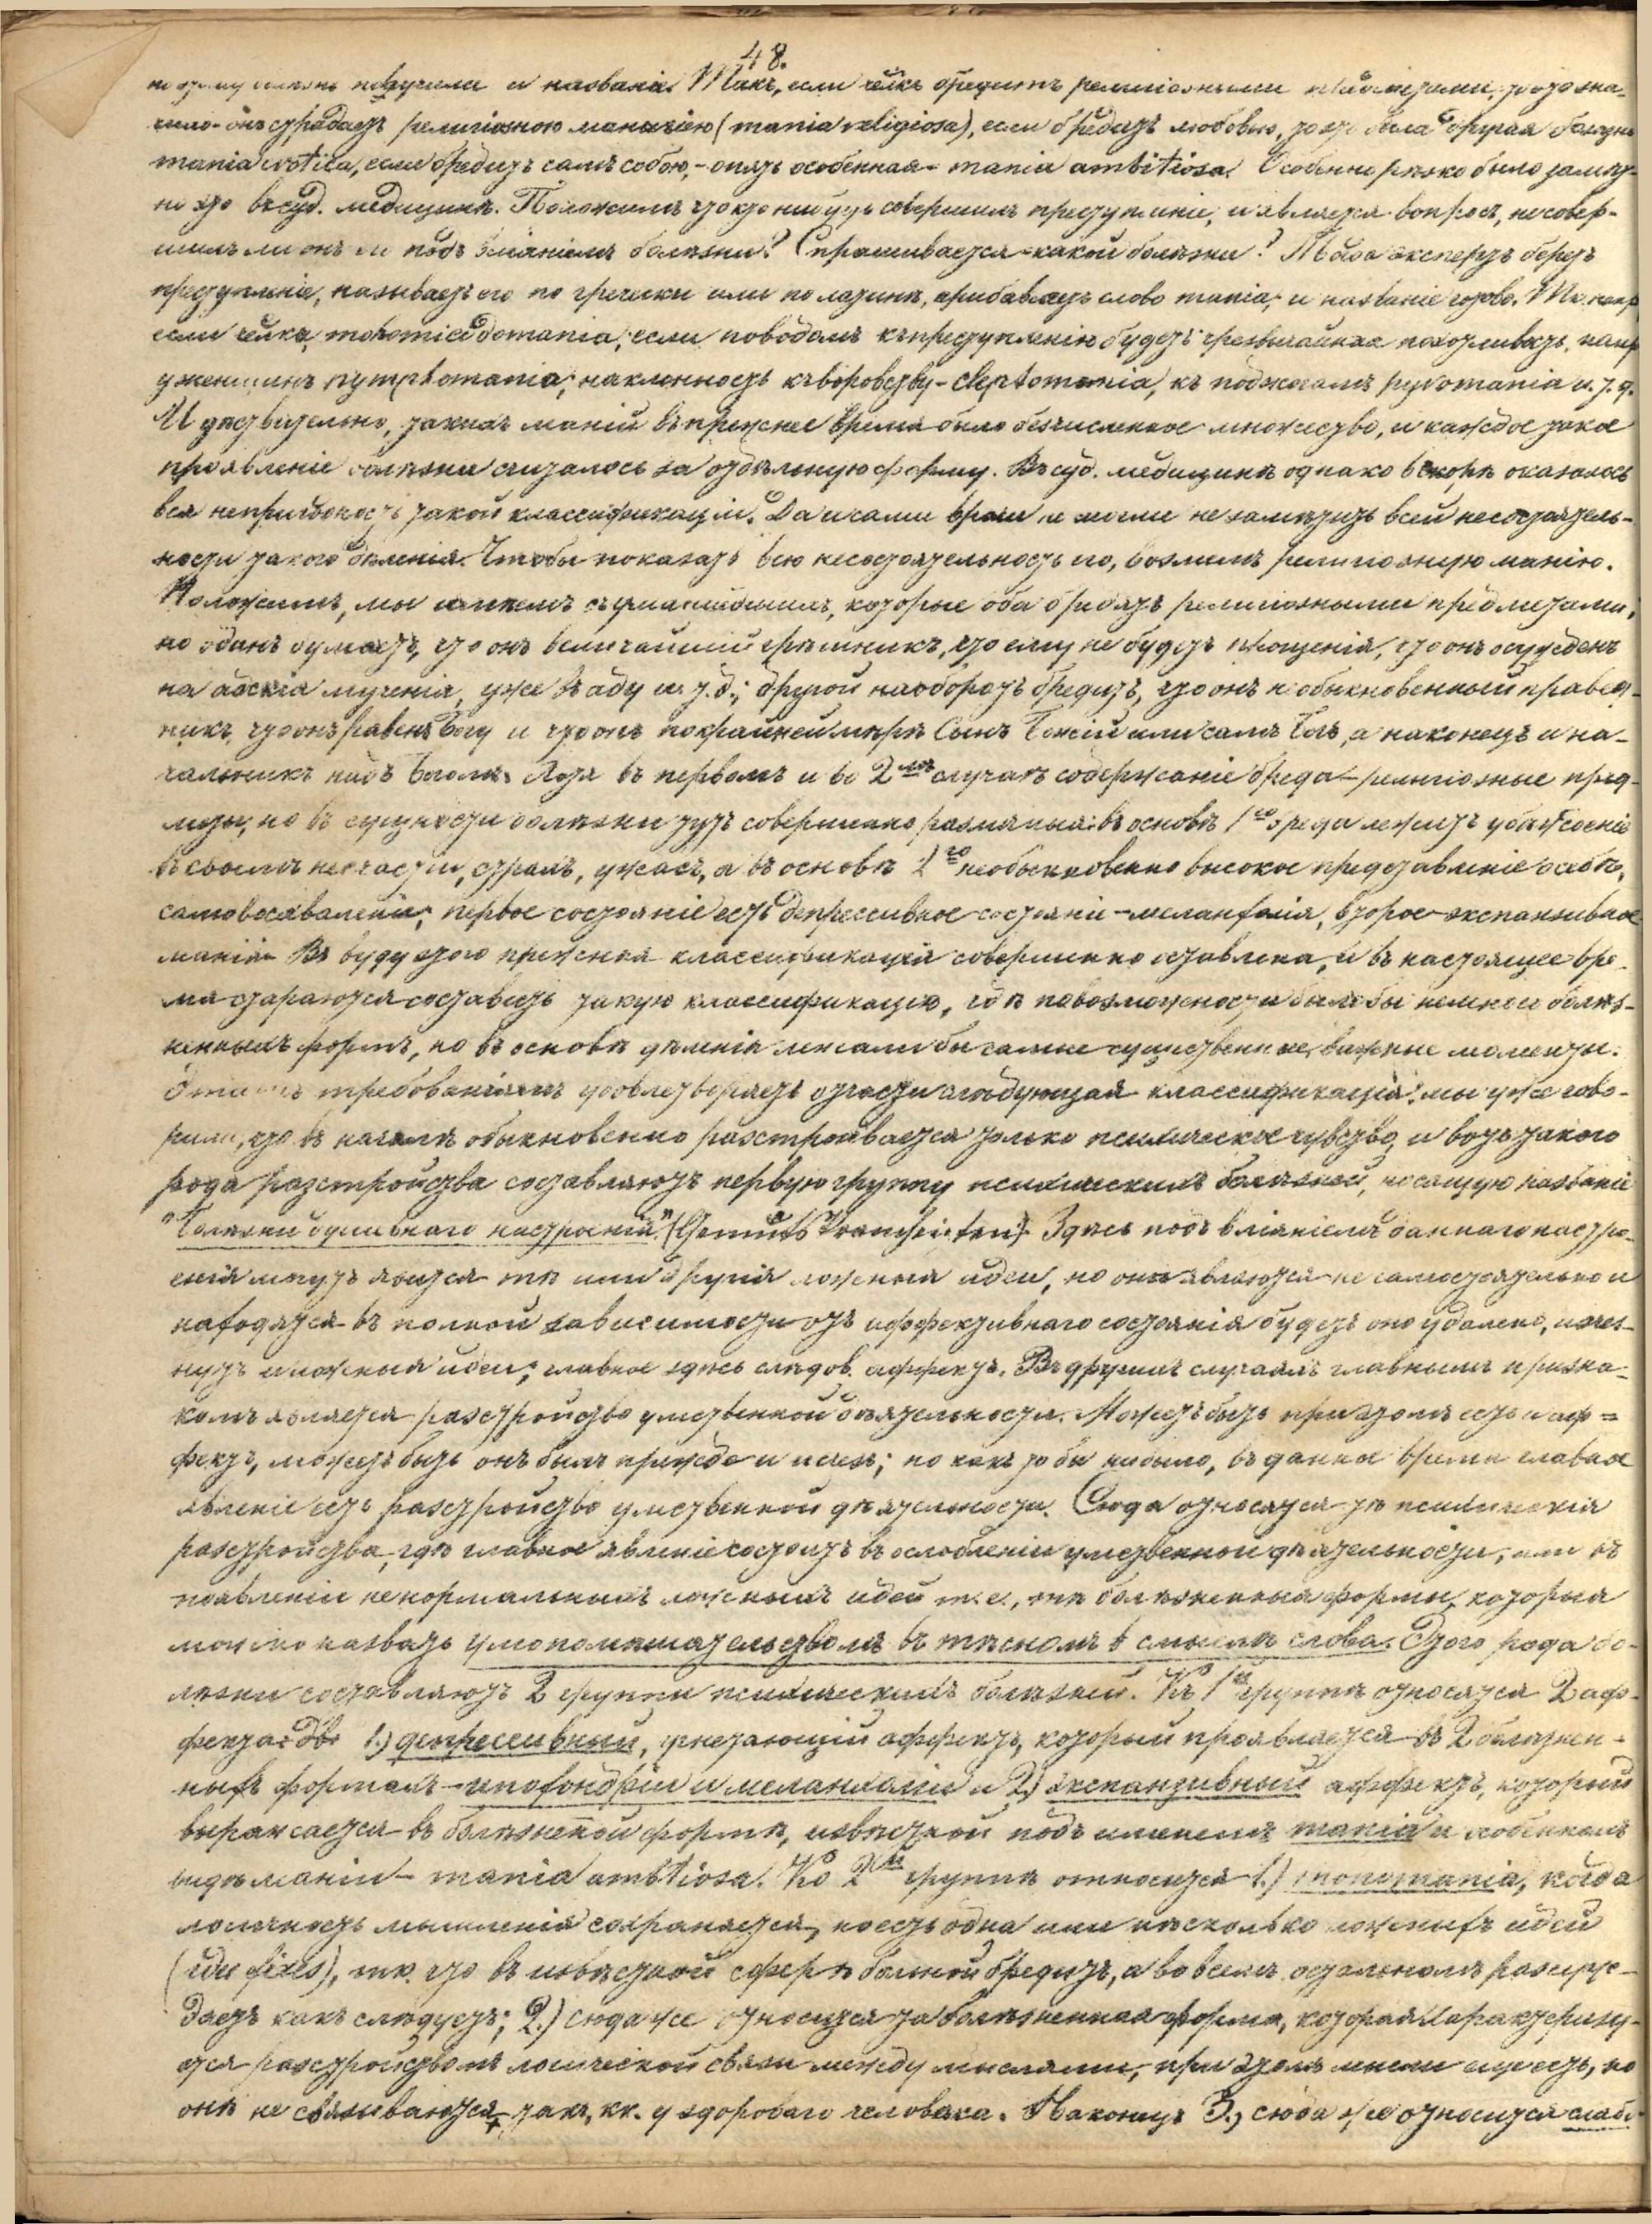 48.
поэтому онѣ получили и названіе. Такъ, если челкъ бредитъ религіозными предметами, то это зна-
чило – онъ страдаетъ религіозною маніею (mania religiosa), если бредитъ любовью, то это была другая болѣзнь
mania erotica, если бредитъ самъ собою, – опять особенная – mania ambitiosa. Особенно рѣзко было замѣт-
но это въ суд. медицинѣ. Положимъ что кто нибудь совершилъ преступленіе, и является вопросъ, не совер-
шилъ ли онъ его подъ вліяніемъ болѣзни? Спрашивается – какой болѣзни? Тогда экспертъ беретъ
преступленіе, называетъ его по гречески или по латинѣ, прибавляетъ слово mania, и названіе готово. Такъ напр
если челка, то homicidomania; если поводомъ къ преступленію будетъ чрезвычайная похотливость, напр
у женщинъ nymphomania; наклонность къ воровству – cleptomania, къ поджогамъ pyromania и. т. д.
И дѣйствительно, такихъ маній въ прежнее время было безчисленное множество, и каждое такое
проявленіе болѣзни считалось за отдѣльную форму. Въ суд. медицинѣ однако вскорѣ оказалась
вся непригодность такой классификаціи. Да и сами врачи не могли не замѣтить всей несостоятель-
ности такого дѣленія. Чтобы показать всю несостоятельность его, возьмемъ религіозную манію.
Положимъ, мы имѣемъ 2 сумасшедшихъ, которые оба бредятъ религіозными предметами,
но одинъ думаетъ, что онъ величайшій грѣшникъ, что ему не будетъ прощенія, что онъ осужденъ
на адскія мученія, уже въ аду и. т. д.; другой наоборотъ бредитъ, что онъ необыкновенный правед-
никъ, что онъ равенъ Богу и что онъ по крайней мѣрѣ Сынъ Божій или самъ Богъ, а наконецъ и на-
чальникъ надъ Богомъ. Хотя въ первомъ и во 2мъ случаѣ содержаніе бреда – религіозные пред-
меты, но въ сущности болѣзни тутъ совершенно различныя: въ основѣ 1го бреда лежитъ убѣжденіе
въ своемъ несчастіи, страхъ, ужасъ, а въ основѣ 2го необыкновенно высокое представленіе о себѣ,
самовосхваленіе; первое состояніе есть депрессивное состояніе – меланхолія, второе – экспансивное
манія. Въ виду этого прежняя классификація совершенно оставлена, и въ настоящее вре-
мя стараются составить такую классификацію, гдѣ по возможности было бы немного болѣз-
ненныхъ формъ, но въ основѣ дѣленія лежали бы самые существенные, важные моменты.
Этимъ требованіямъ удовлетворяетъ отчасти слѣдующая классификація: мы уже гово-
рили, что въ началѣ обыкновенно разстраивается только психическое чувство, и вотъ такого
рода разстройства составляютъ первую группу психическихъ болѣзней, носящую названіе
"Болѣзни душевнаго настроенія" (Gemüts Krankheiten). Здѣсь подъ вліяніемъ даннаго настро-
енія могутъ явиться тѣ или другія ложныя идеи, но онѣ являются не самостоятельно и
находятся въ полной зависимости отъ аффективнаго состоянія будетъ оно удалено, изчез-
нутъ и ложныя идеи; главное здѣсь слѣдов. аффектъ. Въ другихъ случаяхъ главнымъ призна-
комъ является разстройство умственной дѣятельности. Можетъ быть при этомъ есть и аф=
фектъ, можетъ быть онъ былъ прежде и исчезъ; но какъ то бы ни было, въ данное время главное
явленіе есть разстройство умственной дѣятельности. Сюда относятся тѣ психическія
разстройства, гдѣ главное явленіе состоитъ въ ослабленіи умственной дѣятельности, или въ
появленіи ненормальныхъ ложныхъ идей т. е., тѣ болѣзненныя формы, которыя
можно назвать умопомѣшательствомъ въ тѣсномъ смыслѣ слова. Этого рода бо-
лѣзни составляютъ 2 группы психическихъ болѣзней. Къ 1й группѣ относятся 2 аф-
фекта: 1.) депрессивный, угнетающій аффектъ, который проявляется въ 2 болѣзнен-
ныхъ формахъ – ипохондріи и меланхоліи и 2.) экспансивный аффектъ, который
выражается въ болѣзненой формѣ, извѣстной подъ именемъ mania и особенномъ
видѣ маніи – mania ambitiosa. Ко 2й группѣ относится 1.) monomania, когда
логичность мышленія сохраняется, но есть одна или нѣсколько ложныхъ идей
(idée fixes), тк. что въ извѣстной сферѣ больной бредитъ, а во всемъ остальномъ разсуж-
даетъ какъ слѣдуетъ; 2.) сюда же относится та болѣзненная форма, которая характеризу-
ется разстройствомъ логической связи между мыслями, при этомъ мысли еще есть, но
онѣ не связываются такъ, кк. у здороваго человѣка. Наконецъ 3.) сюда же относится слабо